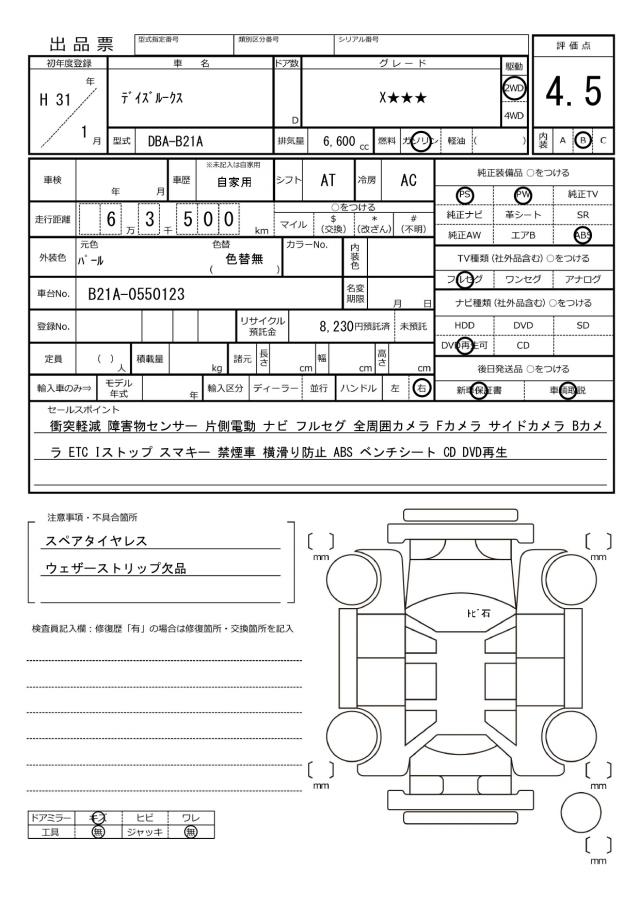 出品票 型式指定番号 類別区分番号 シリアル番号
評価点
4.5
内装 A B C
初年度登録 車名 ドア数 グレード 駆動
H 31 年 1 月
ﾃﾞｲｽﾞﾙｰｸｽ D X★★★ 2WD 4WD
型式 DBA-B21A 排気量 6,600 cc 燃料 ガソリン 軽油 ( )
車検 年 月 車歴 ※未記入は自家用 自家用 シフト AT 冷房 AC
走行距離 6 万 3 千 5 0 0 km
○をつける
マイル $(交換) *(改ざん) #(不明)
外装色 元色 ﾊﾟｰﾙ 色替 ( 色替無 ) カラーNo. 内装色
車台No. B21A-0550123 名変期限 月 日
登録No. リサイクル預託金 8,230円預託済 未預託
定員 ( )人 積載量 kg 諸元 長さ cm 幅 cm 高さ cm
輸入車のみ⇒ モデル年式 年 輸入区分 ディーラー 並行 ハンドル 左 右
純正装備品 ○をつける
PS PW 純正TV
純正ナビ 革シート SR
純正AW エアB ABS
TV種類(社外品含む)○をつける
フルセグ ワンセグ アナログ
ナビ種類(社外品含む)○をつける
HDD DVD SD
DVD再生可 CD
後日発送品 ○をつける
新車保証書 車輌取説
セールスポイント
衝突軽減 障害物センサー 片側電動 ナビ フルセグ 全周囲カメラ Fカメラ サイドカメラ Bカメ
ラ ETC Iストップ スマキー 禁煙車 横滑り防止 ABS ベンチシート CD DVD再生
注意事項・不具合箇所
スペアタイヤレス
ウェザーストリップ欠品
検査員記入欄：修復歴「有」の場合は修復箇所・交換箇所を記入
〔 〕mm 〔 〕mm
ﾄﾋﾞ石
〔 〕mm 〔 〕mm
〔 〕mm
ドアミラー キズ ヒビ ワレ
工具 無 ジャッキ 無